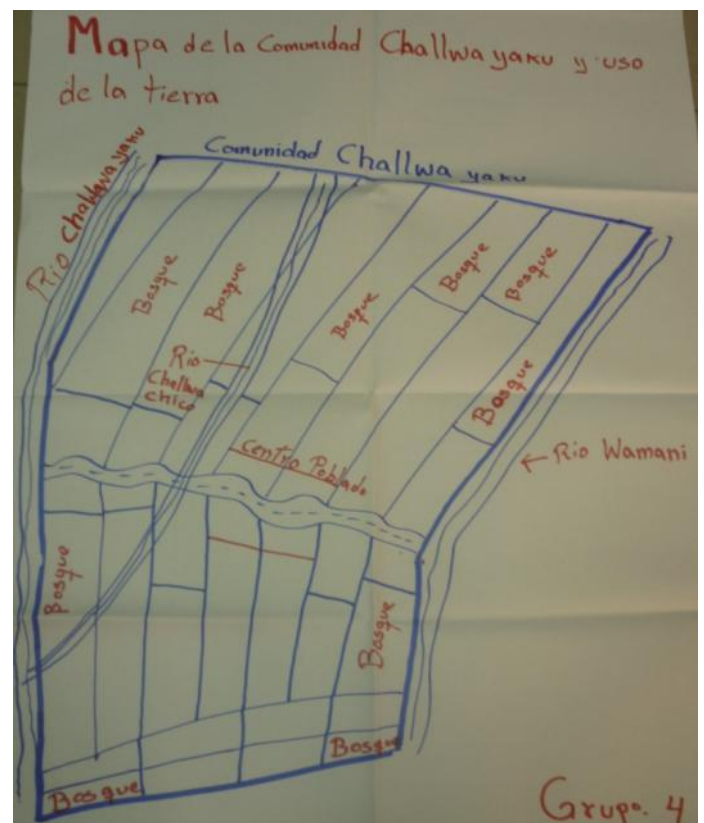 Mapa de la Comunidad Challwa yaku y uso
de la tierra
Comunidad Challwa yaku
Rio Challwa yaku
Bosque
Bosque
Bosque
Bosque
Bosque
Bosque
Rio
Challwa
chico
Centro Poblado
← Rio Wamani
Bosque
Bosque
Bosque
Bosque
Grupo. 4